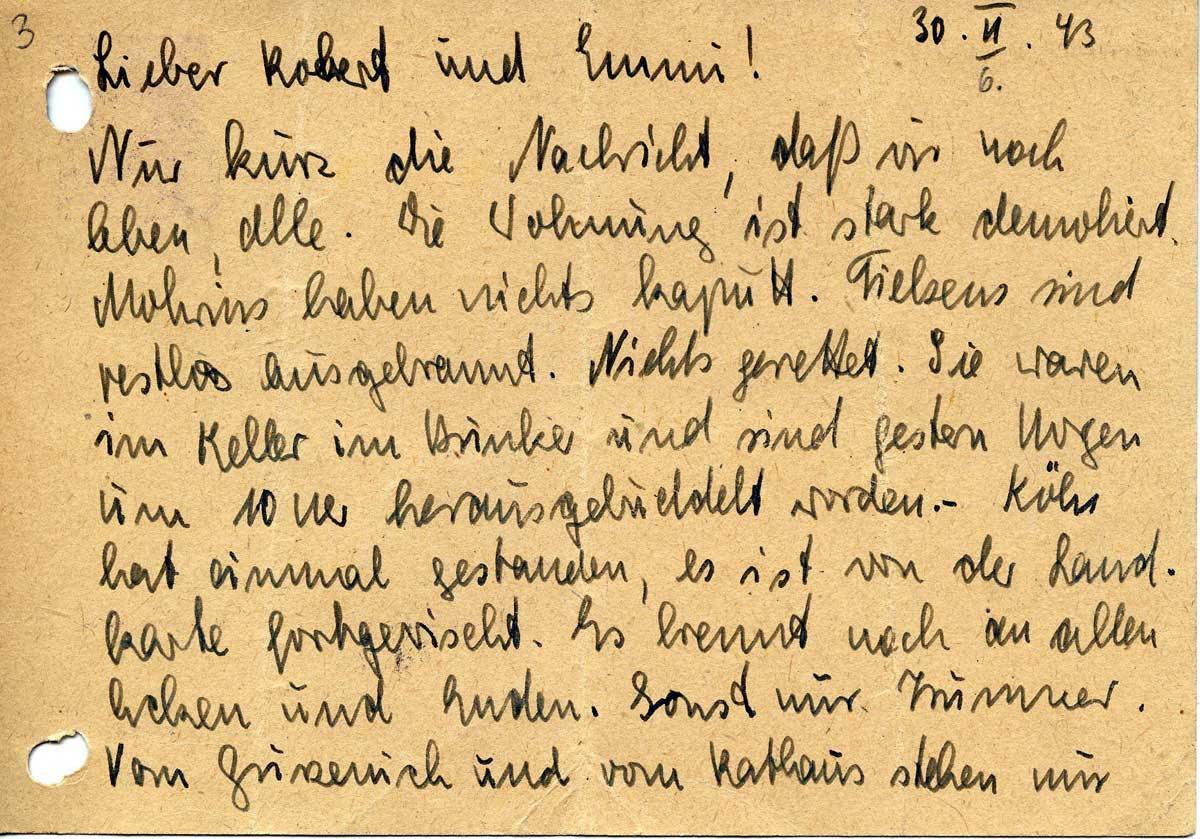 3
30. VI. 43
6.
Lieber Robert und Emmi!
Nur kurz die Nachricht, daß wir noch
leben, alle. Die Wohnung ist stark demoliert.
Mohrins haben nichts kaputt. Tielsens sind
restlos ausgebrannt. Nichts gerettet. Sie waren
im Keller im Bunker und sind gestern Morgen
um 10 Uhr herausgebuddelt worden.- Köln
hat einmal gestanden, es ist von der Land-
karte fortgewischt. Es brennt noch an allen
Ecken und Enden. Sonst nur Trümmer.
Vom Gürzenich und vom Rathaus stehen nur